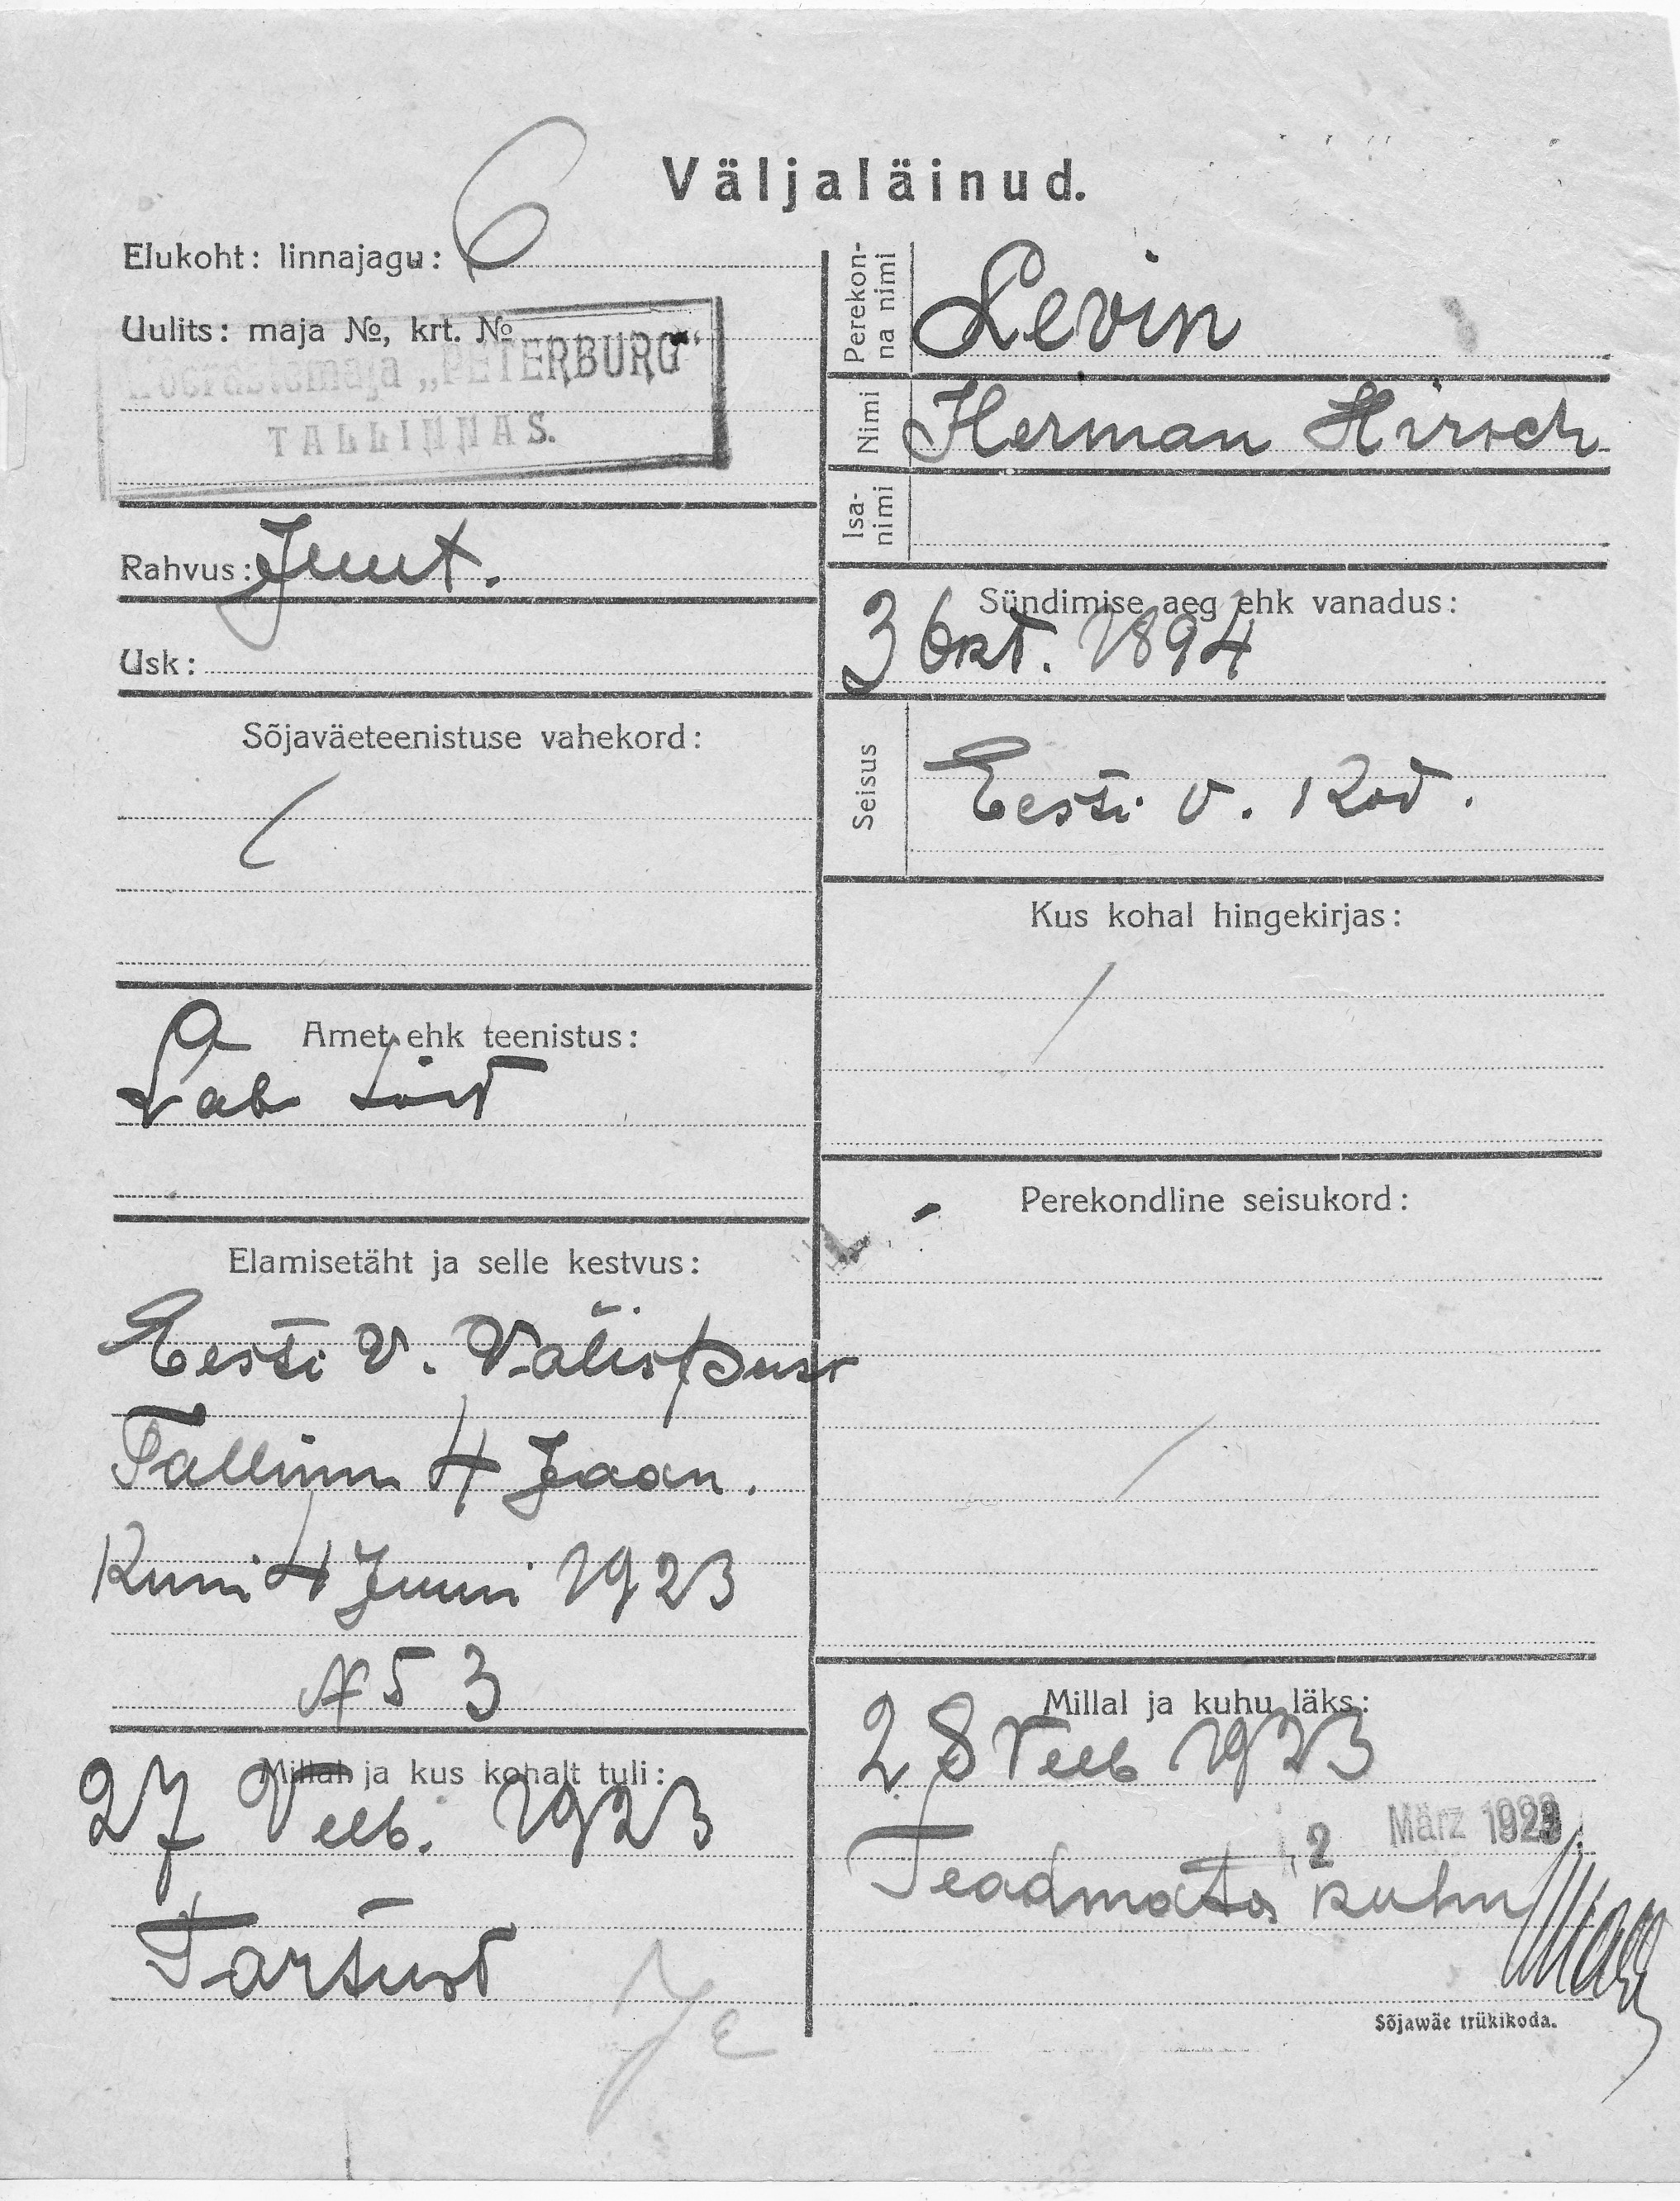 Väljaläinud.
Elukoht: linnajagu: 6
Uulits: maja №, krt. №
Võõrastemaja „PETERBURG“
TALLINNAS.
Rahvus: Juut.
Usk:
Sõjaväeteenistuse vahekord:
Amet ehk teenistus:
Elamisetäht ja selle kestvus:
Eesti V. Välispass
Tallinn 4 Jaan.
Kuni 4 Juuni 1923
№ 53
Millal ja kus kohalt tuli:
27 Veeb. 1923
Tartust
Perekonna nimi
Levin
Nimi
Herman Hirsch
Isanimi
Sündimise aeg ehk vanadus:
3 Okt. 1894
Seisus
Eesti v. Kod.
Kus kohal hingekirjas:
Perekondline seisukord:
Millal ja kuhu läks:
28 Veeb 1923
2 März 1923
Teadmata kuhu
Sõjawäe trükikoda.